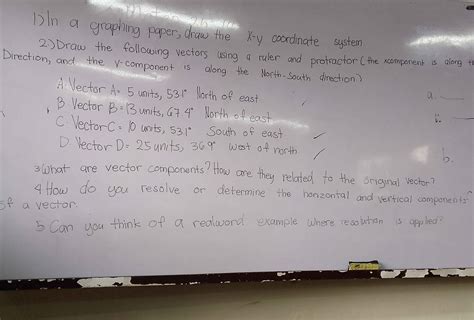 1) In a graphing paper, draw the X-y coordinate system
2) Draw the following vectors using a ruler and protractor (the xcomponent is along the
Direction, and the y-component is along the North-South direction)
A. Vector A = 5 units, 53.1° North of east
B. Vector B = 13 units, 67.4° North of east
C Vector C = 10 units, 53.1° South of east
D. Vector D = 25 units, 36.9° West of north
a.
b.
3 What are vector components? How are they related to the original vector?
4 How do you resolve or determine the horizontal and vertical components
of a vector.
5 Can you think of a realword example where resolution is applied?